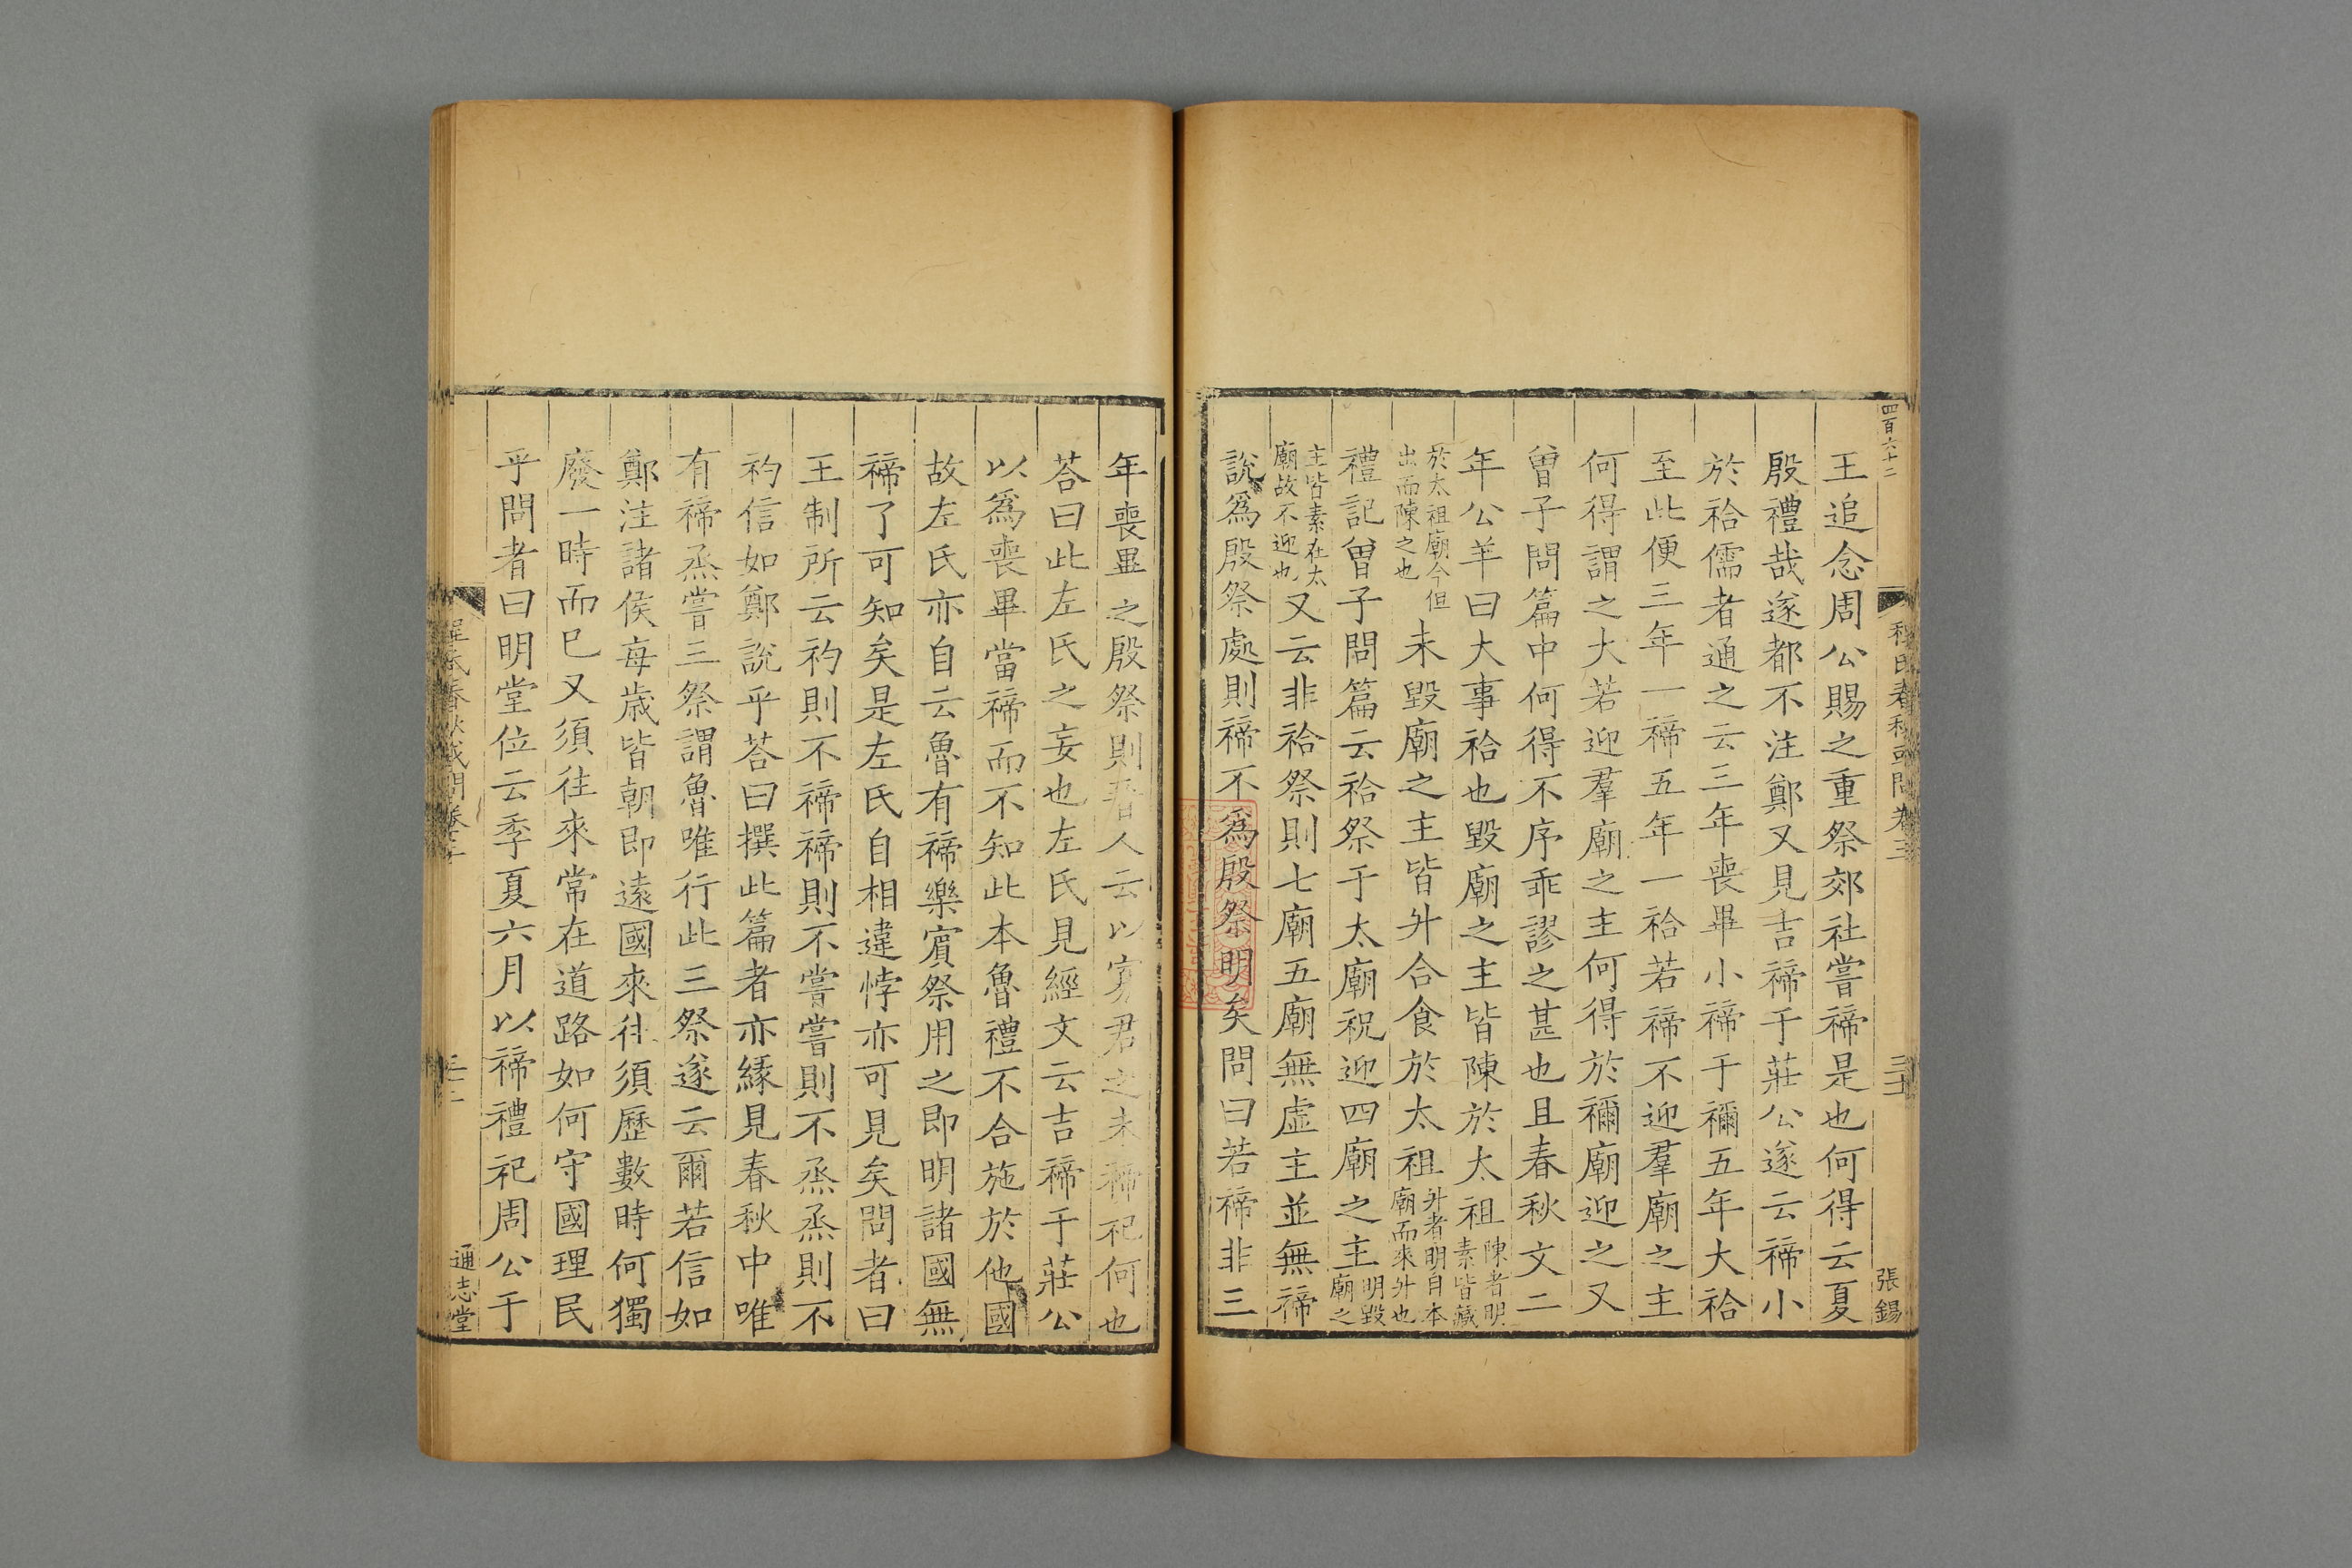 四百六十二
王追念周公賜之重祭郊社嘗禘是也何得云夏
殷禮哉遂都不注鄭又見吉禘于莊公遂云禘小
於祫儒者通之云三年喪畢小禘于禰五年大祫
至此便三年一禘五年一祫若禘不迎羣廟之主
何得謂之大若迎羣廟之主何得於禰廟迎之又
曾子問篇中何得不序乖謬之甚也且春秋文二
年公羊曰大事祫也毀廟之主皆陳於太祖陳者明素皆藏
於太祖廟今但出而陳之也未毀廟之主皆升合食於太祖升者明自本廟而來升也
禮記曾子問篇云祫祭于太廟祝迎四廟之主明毀廟之
主皆素在太廟故不迎也又云非祫祭則七廟五廟無虛主並無禘
說爲殷祭處則禘不爲殷祭明矣問曰若禘非三
程氏春秋或問卷三
三十
張錫
年喪畢之殷祭則晉人云以寡君之未禘祀何也
荅曰此左氏之妄也左氏見經文云吉禘于莊公
以爲喪畢當禘而不知此本魯禮不合施於他國
故左氏亦自云魯有禘樂賓祭用之即明諸國無
禘了可知矣是左氏自相違悖亦可見矣問者曰
王制所云礿則不禘禘則不嘗嘗則不烝烝則不
礿信如鄭說乎荅曰撰此篇者亦緣見春秋中唯
有禘烝嘗三祭謂魯唯行此三祭遂云爾若信如
鄭注諸侯每歲皆朝即遠國來往須歷數時何獨
廢一時而巳又須往來常在道路如何守國理民
乎問者曰明堂位云季夏六月以禘禮祀周公于
程氏春秋或問卷三
通志堂